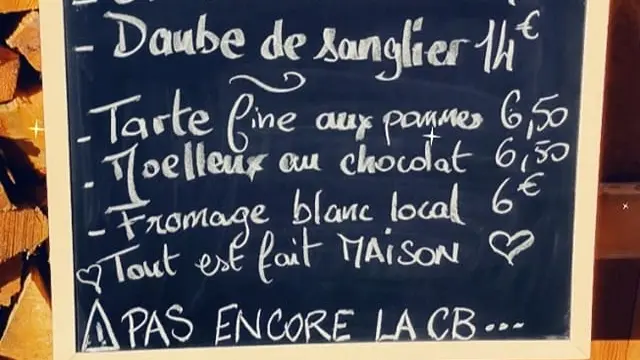 - Daube de sanglier 14€
- Tarte fine aux pommes 6,50
- Moelleux au chocolat 6,50
- Fromage blanc local 6€
♡ Tout est fait MAISON ♡
⚠ PAS ENCORE LA CB...